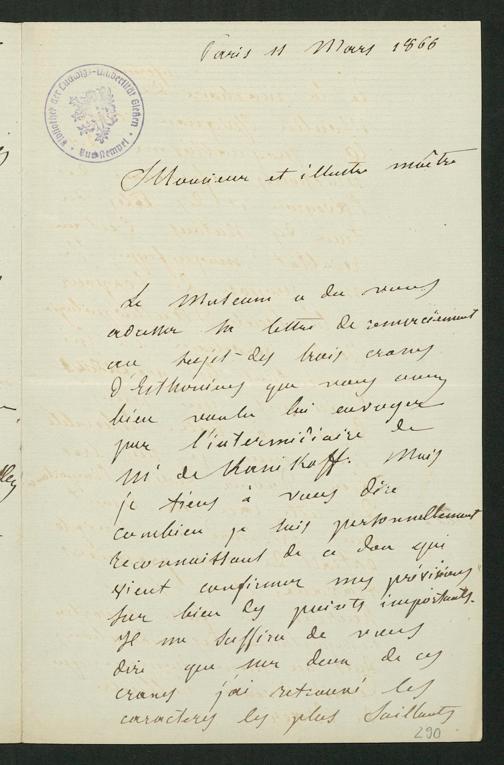 Paris 11 Mars 1866
Bibliothek der Ludwigs-Universität Gießen
Monsieur et illustre maître
Le Museum a du vous
adresser sa lettre de remerciement
au sujet des trois cranes
d'Esthoniens que vous avez
bien voulu lui envoyer
par l'intermédiaire de
Mr de Khanikoff. Mais
je tiens à vous dire
combien je suis personnellement
reconnaissant de ce don qui
vient confirmer mes prévisions
sur bien des points importants.
Il me suffira de vous
dire que sur deux de ces
cranes j'ai retrouvé les
caractères les plus saillants
290